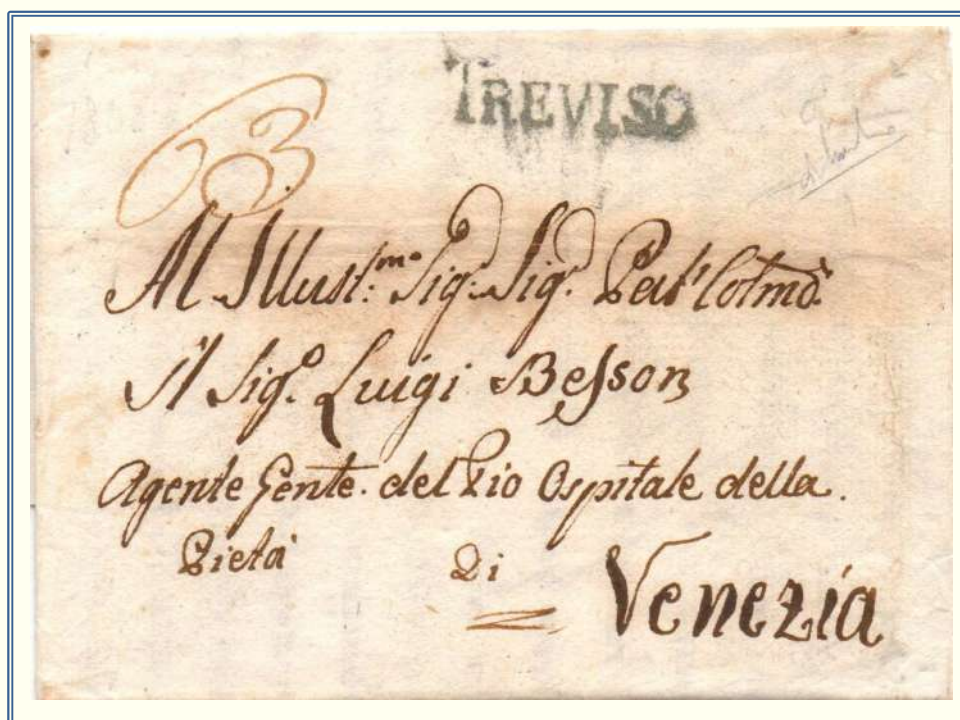 TREVISO
63
Al Illust:mo Sig: Sig:
Il Sig: Luigi Besson
Agente Gente. del Pio Ospitale della.
Pietà Di Venezia